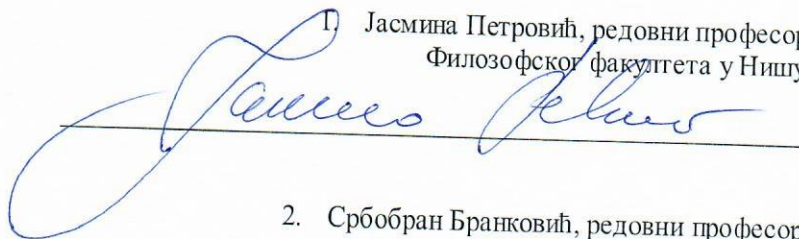 1. Јасмина Петровић, редовни професор
Филозофског факултета у Нишу
2. Србобран Бранковић, редовни професор